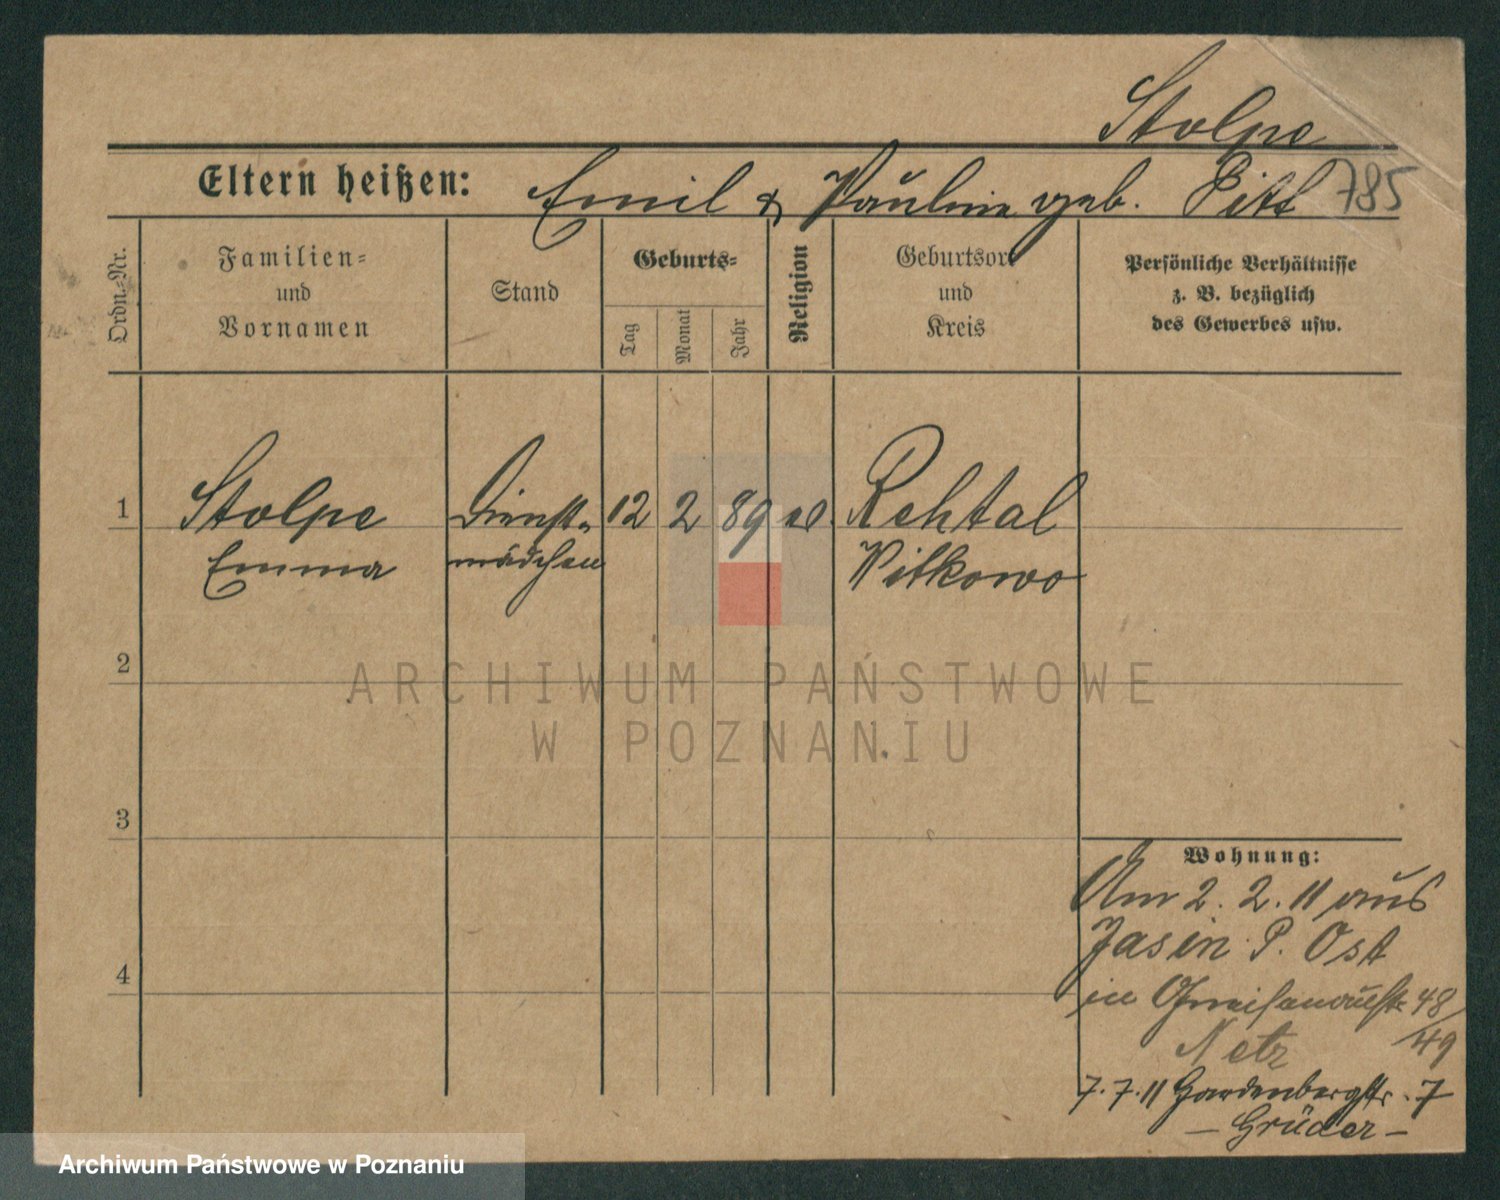 Stolpe
Eltern heißen: Emil & Pauline geb. Pitt 785
Ordn.-Nr.
Familien-
und
Vornamen
Stand
Geburts-
Tag
Monat
Jahr
Religion
Geburtsort
und
Kreis
Persönliche Verhältnisse
z. B. bezüglich
des Gewerbes usw.
1 Stolpe Dienst- 12 2 89 Rehtal
Emma mädchen Witkowo
2
3
4
Wohnung:
Am 2. 2. 11 aus
Jasin P. Ost
in Gneisenaustr 48/49
Netz
7. 7. 11 Hardenbergstr. 7
– Grüder –
ARCHIWUM PAŃSTWOWE
W POZNANIU
Archiwum Państwowe w Poznaniu